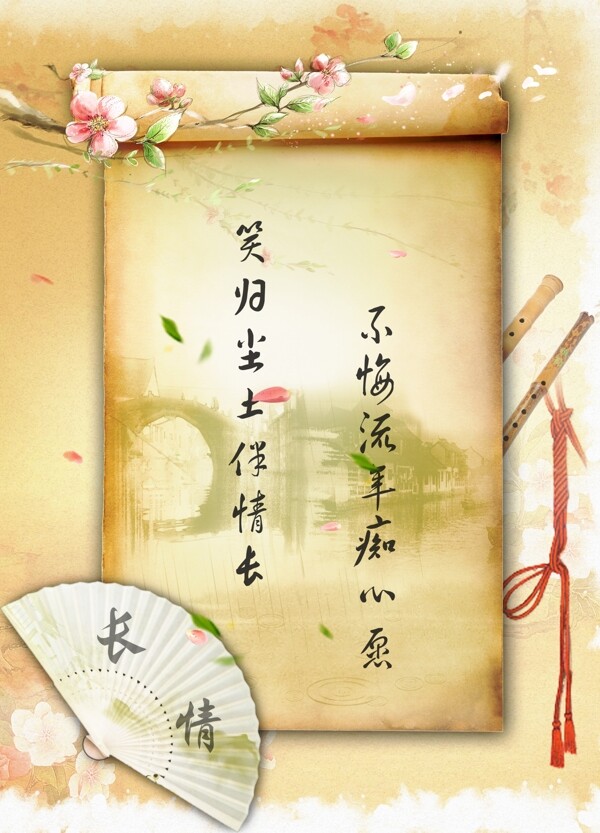 不悔流年痴心愿
笑归尘土伴情长
长情